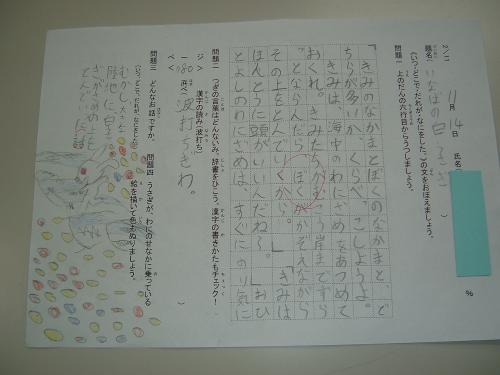 2/11
11月14日 氏名
題名 いなばの白うさぎ
(いつ・どこで・だれが、なにをした。)の文をおぼえましょう。
問題一 上のだんの六行目からうつしましょう。
「きみのなかまとぼくのなかまと、ど
ちらが多いか、くらべっこしようよ。
きみは、海中のわにざめをあつめて
おくれ。きみたちがまっ岸まですら
とならんだら、ぼくがかぞえながら
その上をとんでいくから。」
ほんとうに頭がいいんだね。」おひ
とよしのわにざめは、すぐにのり気に
問題二 つぎの言葉はどんないみ、辞書をひこう。漢字の書きかたもチェック!
漢字の読み(波打ち)
ジ> 180
ペ<
波打ちぎわ。
問題三 どんなお話ですか。
(いつ、どこで、だれが、なにをした。)
問題四 うさぎが、わにのせなかに乗っている
絵を描いて色をぬりましょう。